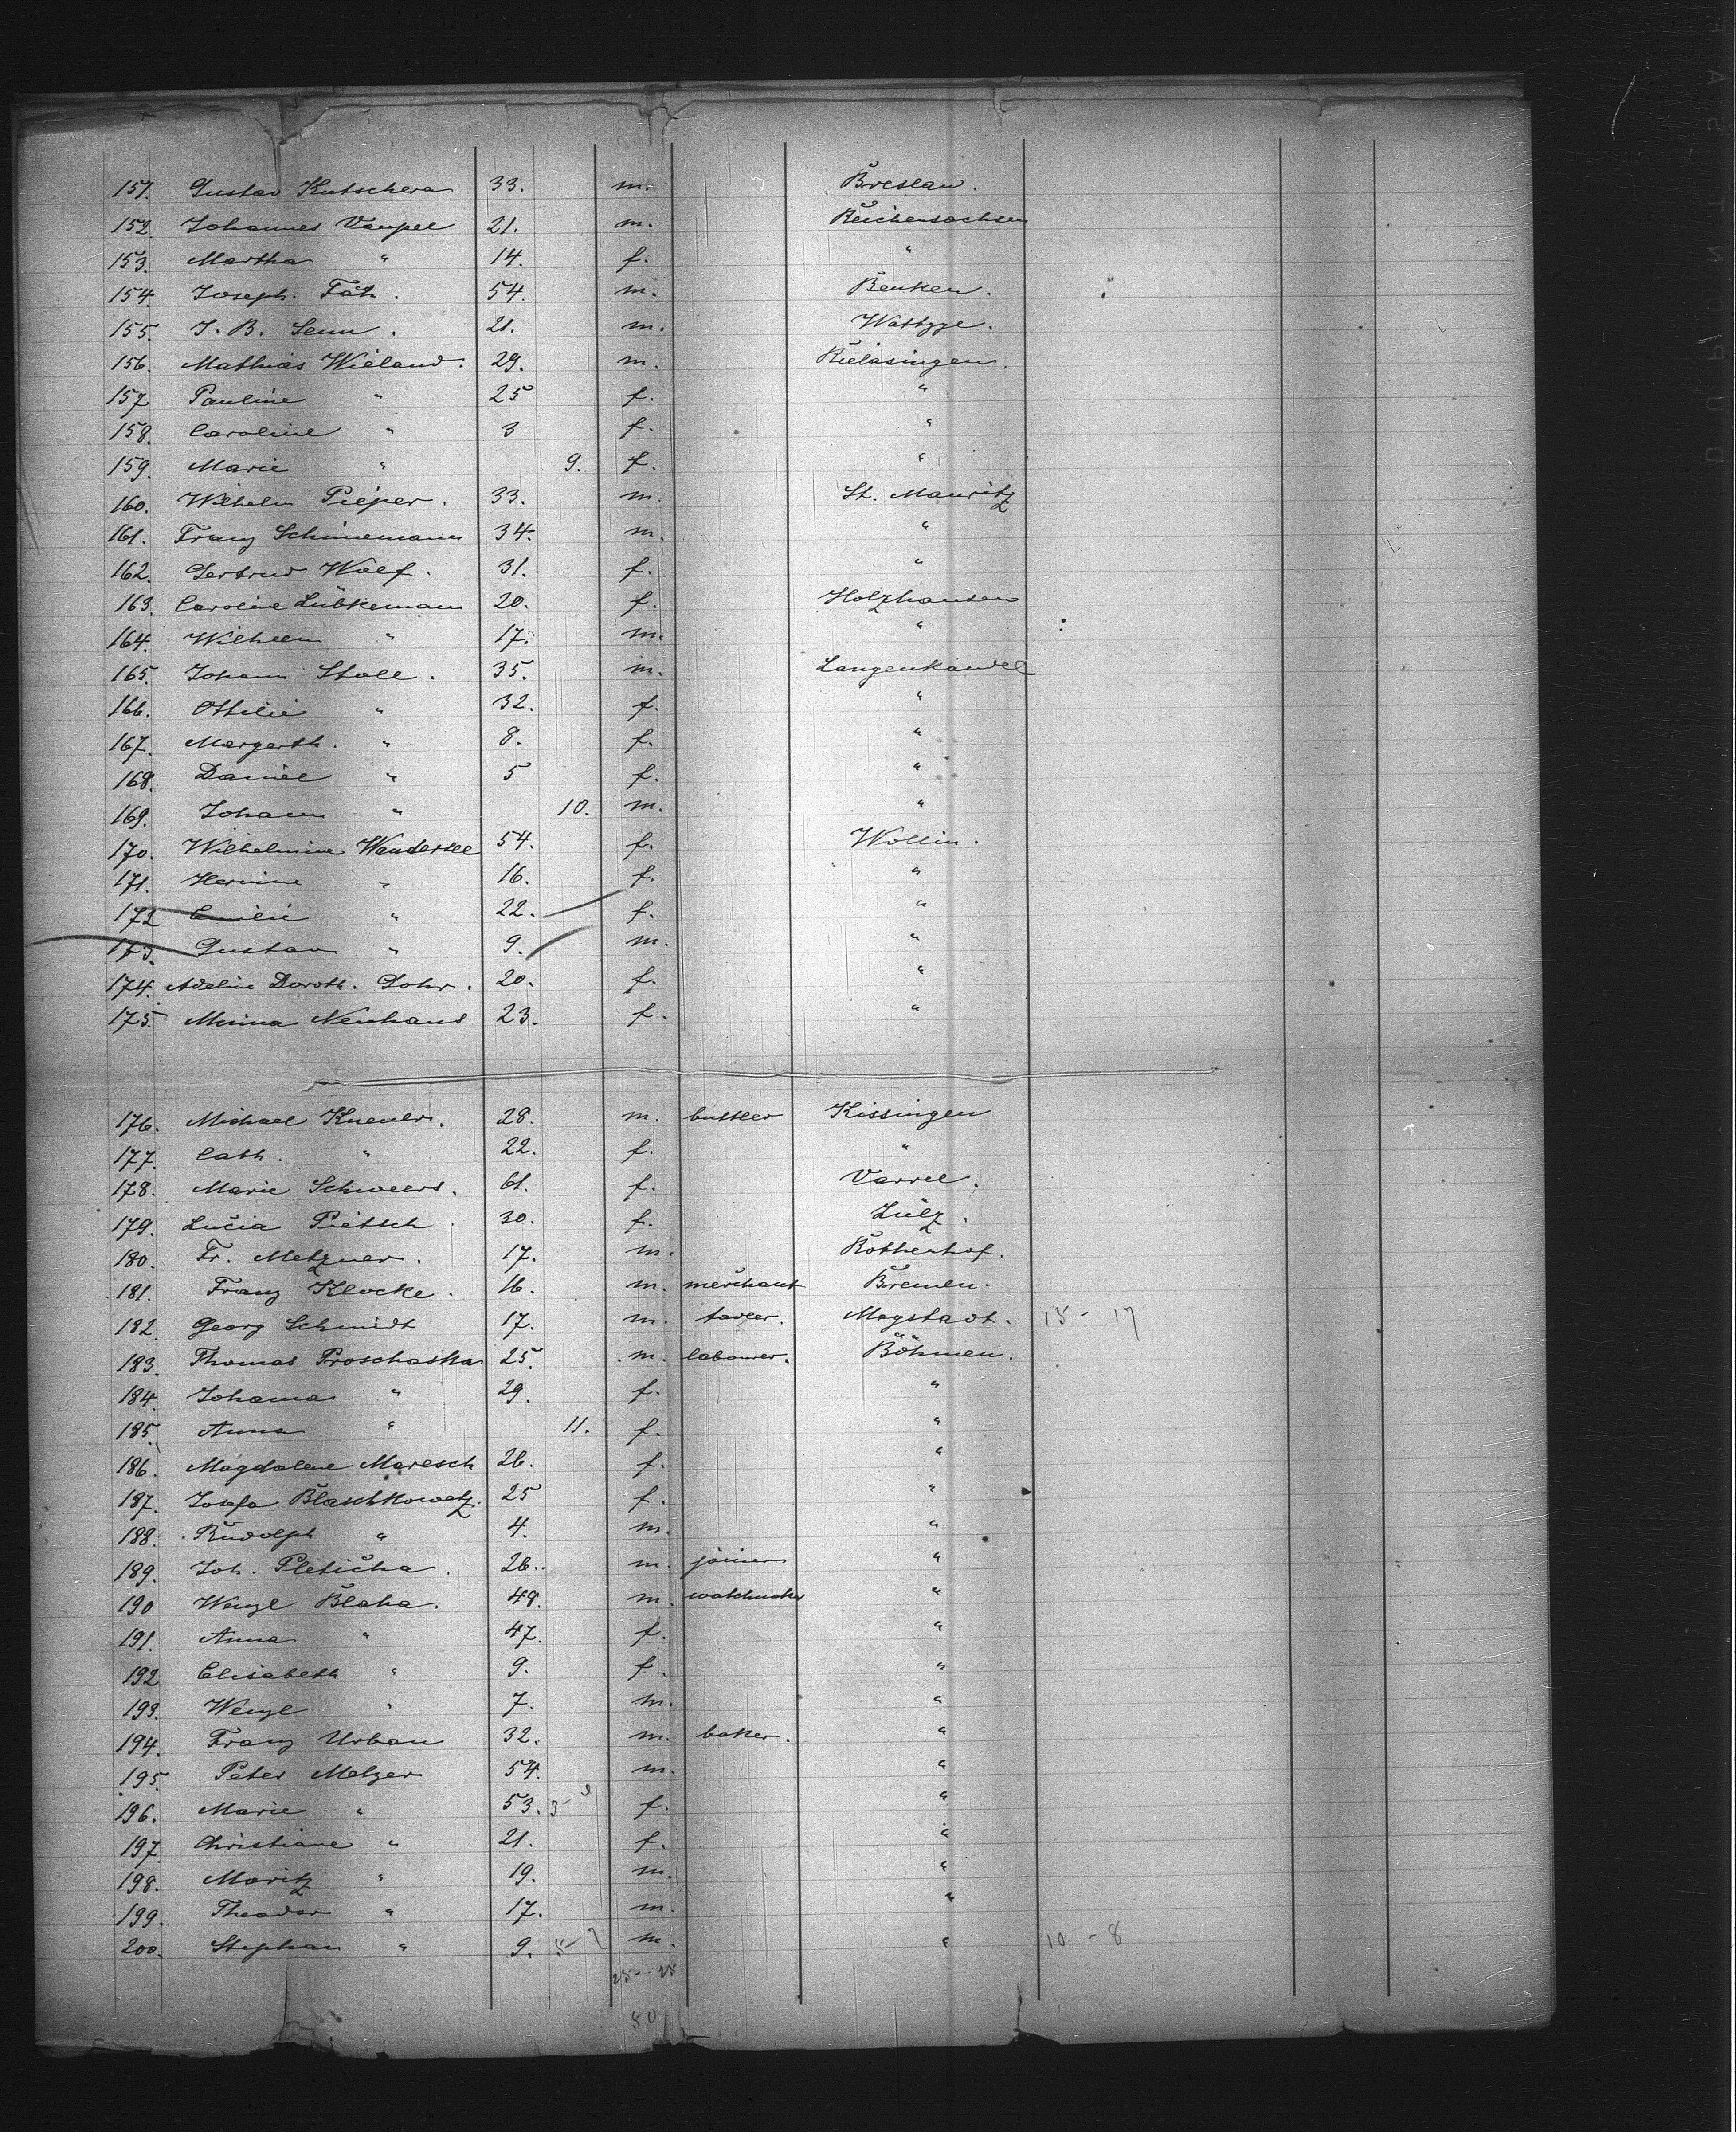 151. Gustav Kutschera 33. m. Breslau.
152. Johannes Vaupel 21. m. Reichensachsen
153. Martha " 14. f. "
154. Joseph. Fäh. 54. m. Benken.
155. J. B. Senn. 21. m.
156. Mathias Wieland. 29. m. Rielasingen.
157. Pauline " 25 f. "
158. Caroline " 3 f. "
159. Marie " 9. f. "
160. Wilhelm Pieper. 33. m. St. Mauritz
161. Franz Schünemann 34. m. "
162. Gertrud Wolf. 31. f. "
163. Caroline Lübkemann 20. f. Holzhausen
164. Wilhelm " 17. m. "
165. Johann Stoll. 35. m. Langenkandel
166. Ottilie " 32. f. "
167. Margerth. " 8. f. "
168. Daniel " 5 f. "
169. Johann " 10. m. "
170. Wilhelmine Wendersee 54. f. Wollin.
171. Hermine " 16. f. "
172 Emilie " 22. f. "
173. Gustav " 9. m. "
174. Adeline Doroth. Dohr. 20. f. "
175. Minna Neuhaus 23. f. "
176. Michael Kneuer. 28. m. buttler Kissingen
177. Cath. " 22. f. "
178. Marie Schweers. 61. f. Varrel.
179. Lucia Pietsch. 30. f. Zülz.
180. Fr. Metzner. 17. m. Rothenhof.
181. Franz Klocke. 16. m. merchant Bremen.
182. Georg Schmidt 17. m. Magstadt. 15 - 17
183. Thomas Proschaska 25. m. labourer. Böhmen.
184. Johanna " 29. f. "
185. Anna " 11. f. "
186. Magdalene Maresch 26. f. "
187. Josefa Blaschkowetz. 25 f. "
188. Rudolph " 4. m. "
189. Joh. Pleticha. 26. m. joiner "
190 Wenzl Blaha. 49. m. watchmaker "
191. Anna " 47. f. "
192 Elisabeth " 9. f. "
193. Wenzl " 7. m. "
194. Franz Urban 32. m. baker. "
195. Peter Melzer 54. m. "
196. Marie " 53. f. "
197. Christiane " 21. f. "
198. Moritz " 19. m. "
199. Theodor " 17. m. "
200. Stephan " 9. m. " 10 - 8
25 - 25
50